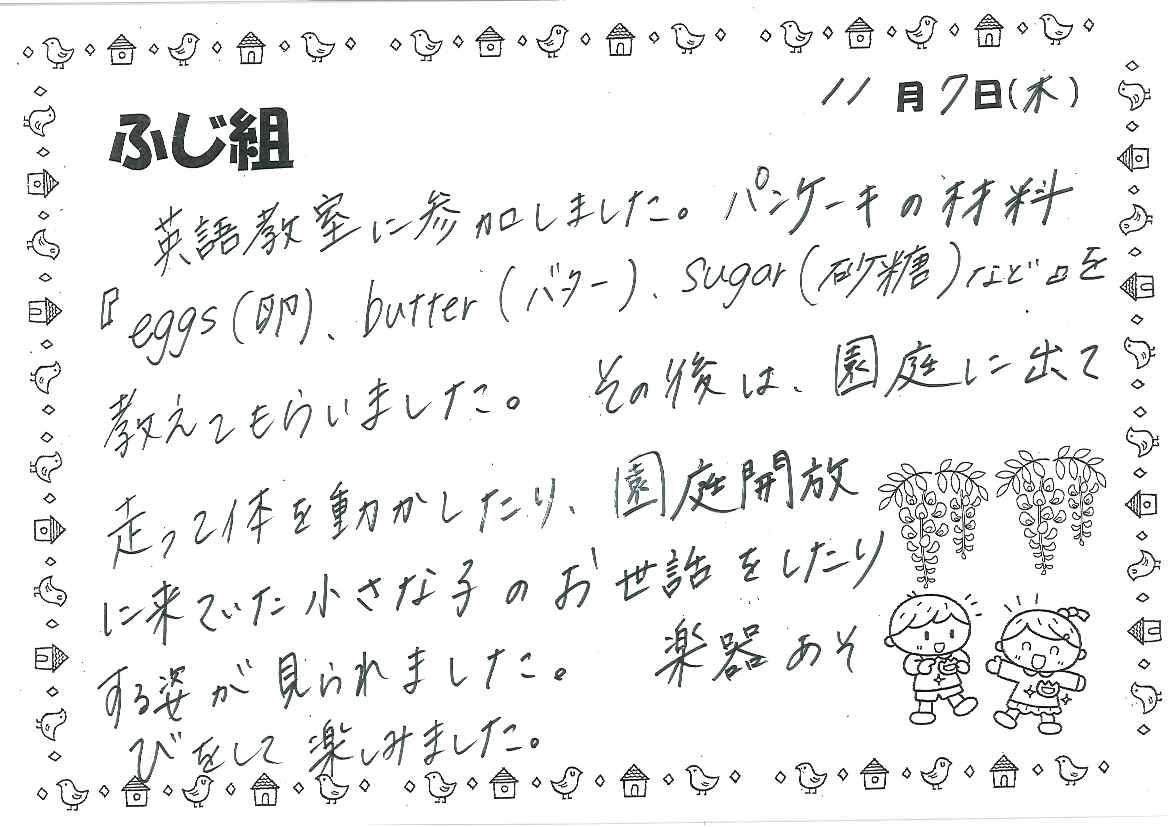 11月7日(木)
ふじ組
英語教室に参加しました。パンケーキの材料
『eggs(卵)、butter(バター)、sugar(砂糖)など』を
教えてもらいました。その後は、園庭に出て
走って体を動かしたり、園庭開放
に来ていた小さな子のお世話をしたり
する姿が見られました。楽器あそ
びをして楽しみました。